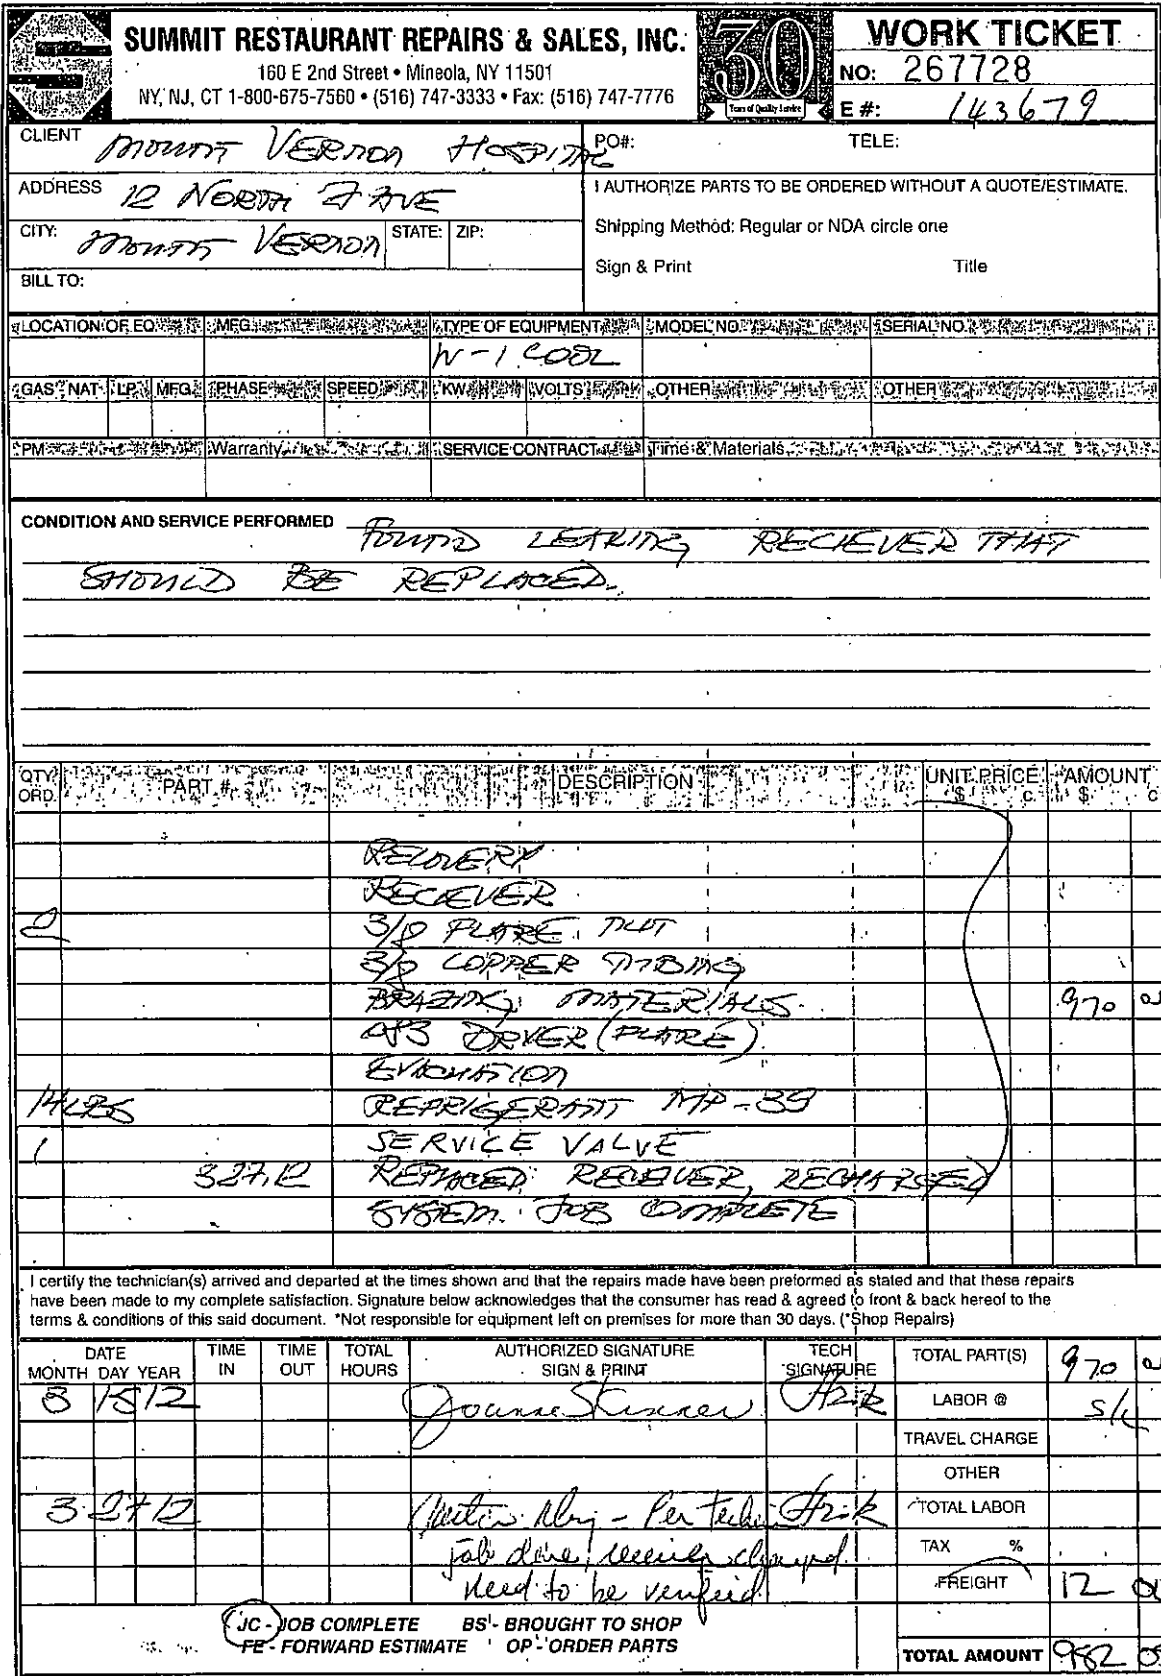 SUMMIT RESTAURANT REPAIRS & SALES, INC.
160 E 2nd Street • Mineola, NY 11501
NY, NJ, CT 1-800-675-7560 • (516) 747-3333 • Fax: (516) 747-7776
30
Years of Quality Service
WORK TICKET
NO: 267728
E #: 143679
CLIENT MOUNT VERNON HOSPITAL
PO#: TELE:
ADDRESS 12 NORTH 7 AVE
I AUTHORIZE PARTS TO BE ORDERED WITHOUT A QUOTE/ESTIMATE.
CITY: MOUNT VERNON STATE: ZIP:
Shipping Method: Regular or NDA circle one
BILL TO:
Sign & Print Title
LOCATION OF EQ. MFG. TYPE OF EQUIPMENT MODEL NO. SERIAL NO.
W-I COOL
GAS NAT LP MFG. PHASE SPEED KW VOLTS OTHER OTHER
PM Warranty SERVICE CONTRACT Time & Materials
CONDITION AND SERVICE PERFORMED FOUND LEAKING RECIEVER THAT
SHOULD BE REPLACED.
QTY ORD. PART # DESCRIPTION UNIT PRICE $ C. AMOUNT $ C
RECOVERY
RECIEVER
2 3/8 FLARE NUT
3/8 COPPER TUBING
BRAZING MATERIALS 970
DRYER (FLARE)
EVACUATION
14 LBS REFRIGERANT MP-39
1 SERVICE VALVE
3.27.12 REPLACED RECIEVER, RECHARGED
SYSTEM. JOB COMPLETE
I certify the technician(s) arrived and departed at the times shown and that the repairs made have been preformed as stated and that these repairs
have been made to my complete satisfaction. Signature below acknowledges that the consumer has read & agreed to front & back hereof to the
terms & conditions of this said document. *Not responsible for equipment left on premises for more than 30 days. (*Shop Repairs)
DATE MONTH DAY YEAR TIME IN TIME OUT TOTAL HOURS AUTHORIZED SIGNATURE SIGN & PRINT TECH SIGNATURE TOTAL PART(S) 970
3 15 12 Joanne Skinner LABOR @ S/C
TRAVEL CHARGE
OTHER
3 27 12 - Per Tech TOTAL LABOR
job done, receiver changed. TAX %
need to be verified FREIGHT 12
JC - JOB COMPLETE BS - BROUGHT TO SHOP
FE - FORWARD ESTIMATE OP - ORDER PARTS
TOTAL AMOUNT 982